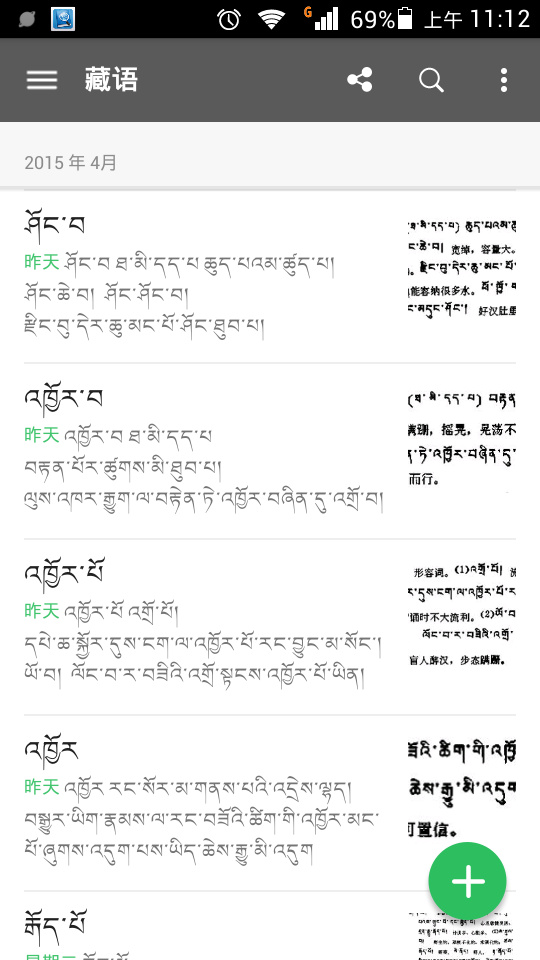 G 69% 上午 11:12
藏语
2015 年 4月
ཤོང་བ
昨天 ཤོང་བ ཐ་མི་དད་པ ཆུད་པའམ་ཚུད་པ།
ཤོང་ཆེ་བ། ཤོང་ཤོང་བ།
རྫིང་བུ་དེར་ཆུ་མང་པོ་ཤོང་ཐུབ་པ།
宽绰，容量大。
能容纳很多水。
འཁྱོར་བ
昨天 འཁྱོར་བ ཐ་མི་དད་པ
བརྟན་པོར་ཚུགས་མི་ཐུབ་པ།
ལུས་འཁར་རྒྱུག་ལ་བརྟེན་ཏེ་འཁྱོར་བཞིན་དུ་འགྲོ་བ།
(ཐ་མི་དད་པ) བརྟན
摇晃，晃荡不
ཏེ་འཁྱོར་བཞིན་དུ་
而行。
འཁྱོར་པོ
昨天 འཁྱོར་པོ འགྲོ་པོ།
དཔེ་ཆ་སྐྱོར་དུས་ངག་ལ་འཁྱོར་པོ་རང་བྱུང་མ་སོང་།
ཡོ་བ། ལོང་བ་ར་བཟིའི་འགྲོ་སྟངས་འཁྱོར་པོ་ཡིན།
形容词。(1)འགྲོ་པོ།
དུས་ངག་ལ་འཁྱོར་པོ་ར
诵时不大流利。(2)ཡོ་བ
ལོང་བ་ར་བཟིའི་འགྲོ་
盲人醉汉，步态蹒跚。
འཁྱོར
昨天 འཁྱོར རང་སོར་མ་གནས་པའི་འདྲེས་ལྷད།
བསྒྱུར་ཡིག་རྣམས་ལ་རང་བཟོའི་ཚིག་གི་འཁྱོར་མང་
པོ་ཞུགས་འདུག་པས་ཡིད་ཆེས་རྒྱུ་མི་འདུག
བཟོའི་ཚིག་གི་འཁྱོ
ཆེས་རྒྱུ་མི་འདུག
可置信。
རྒོད་པོ